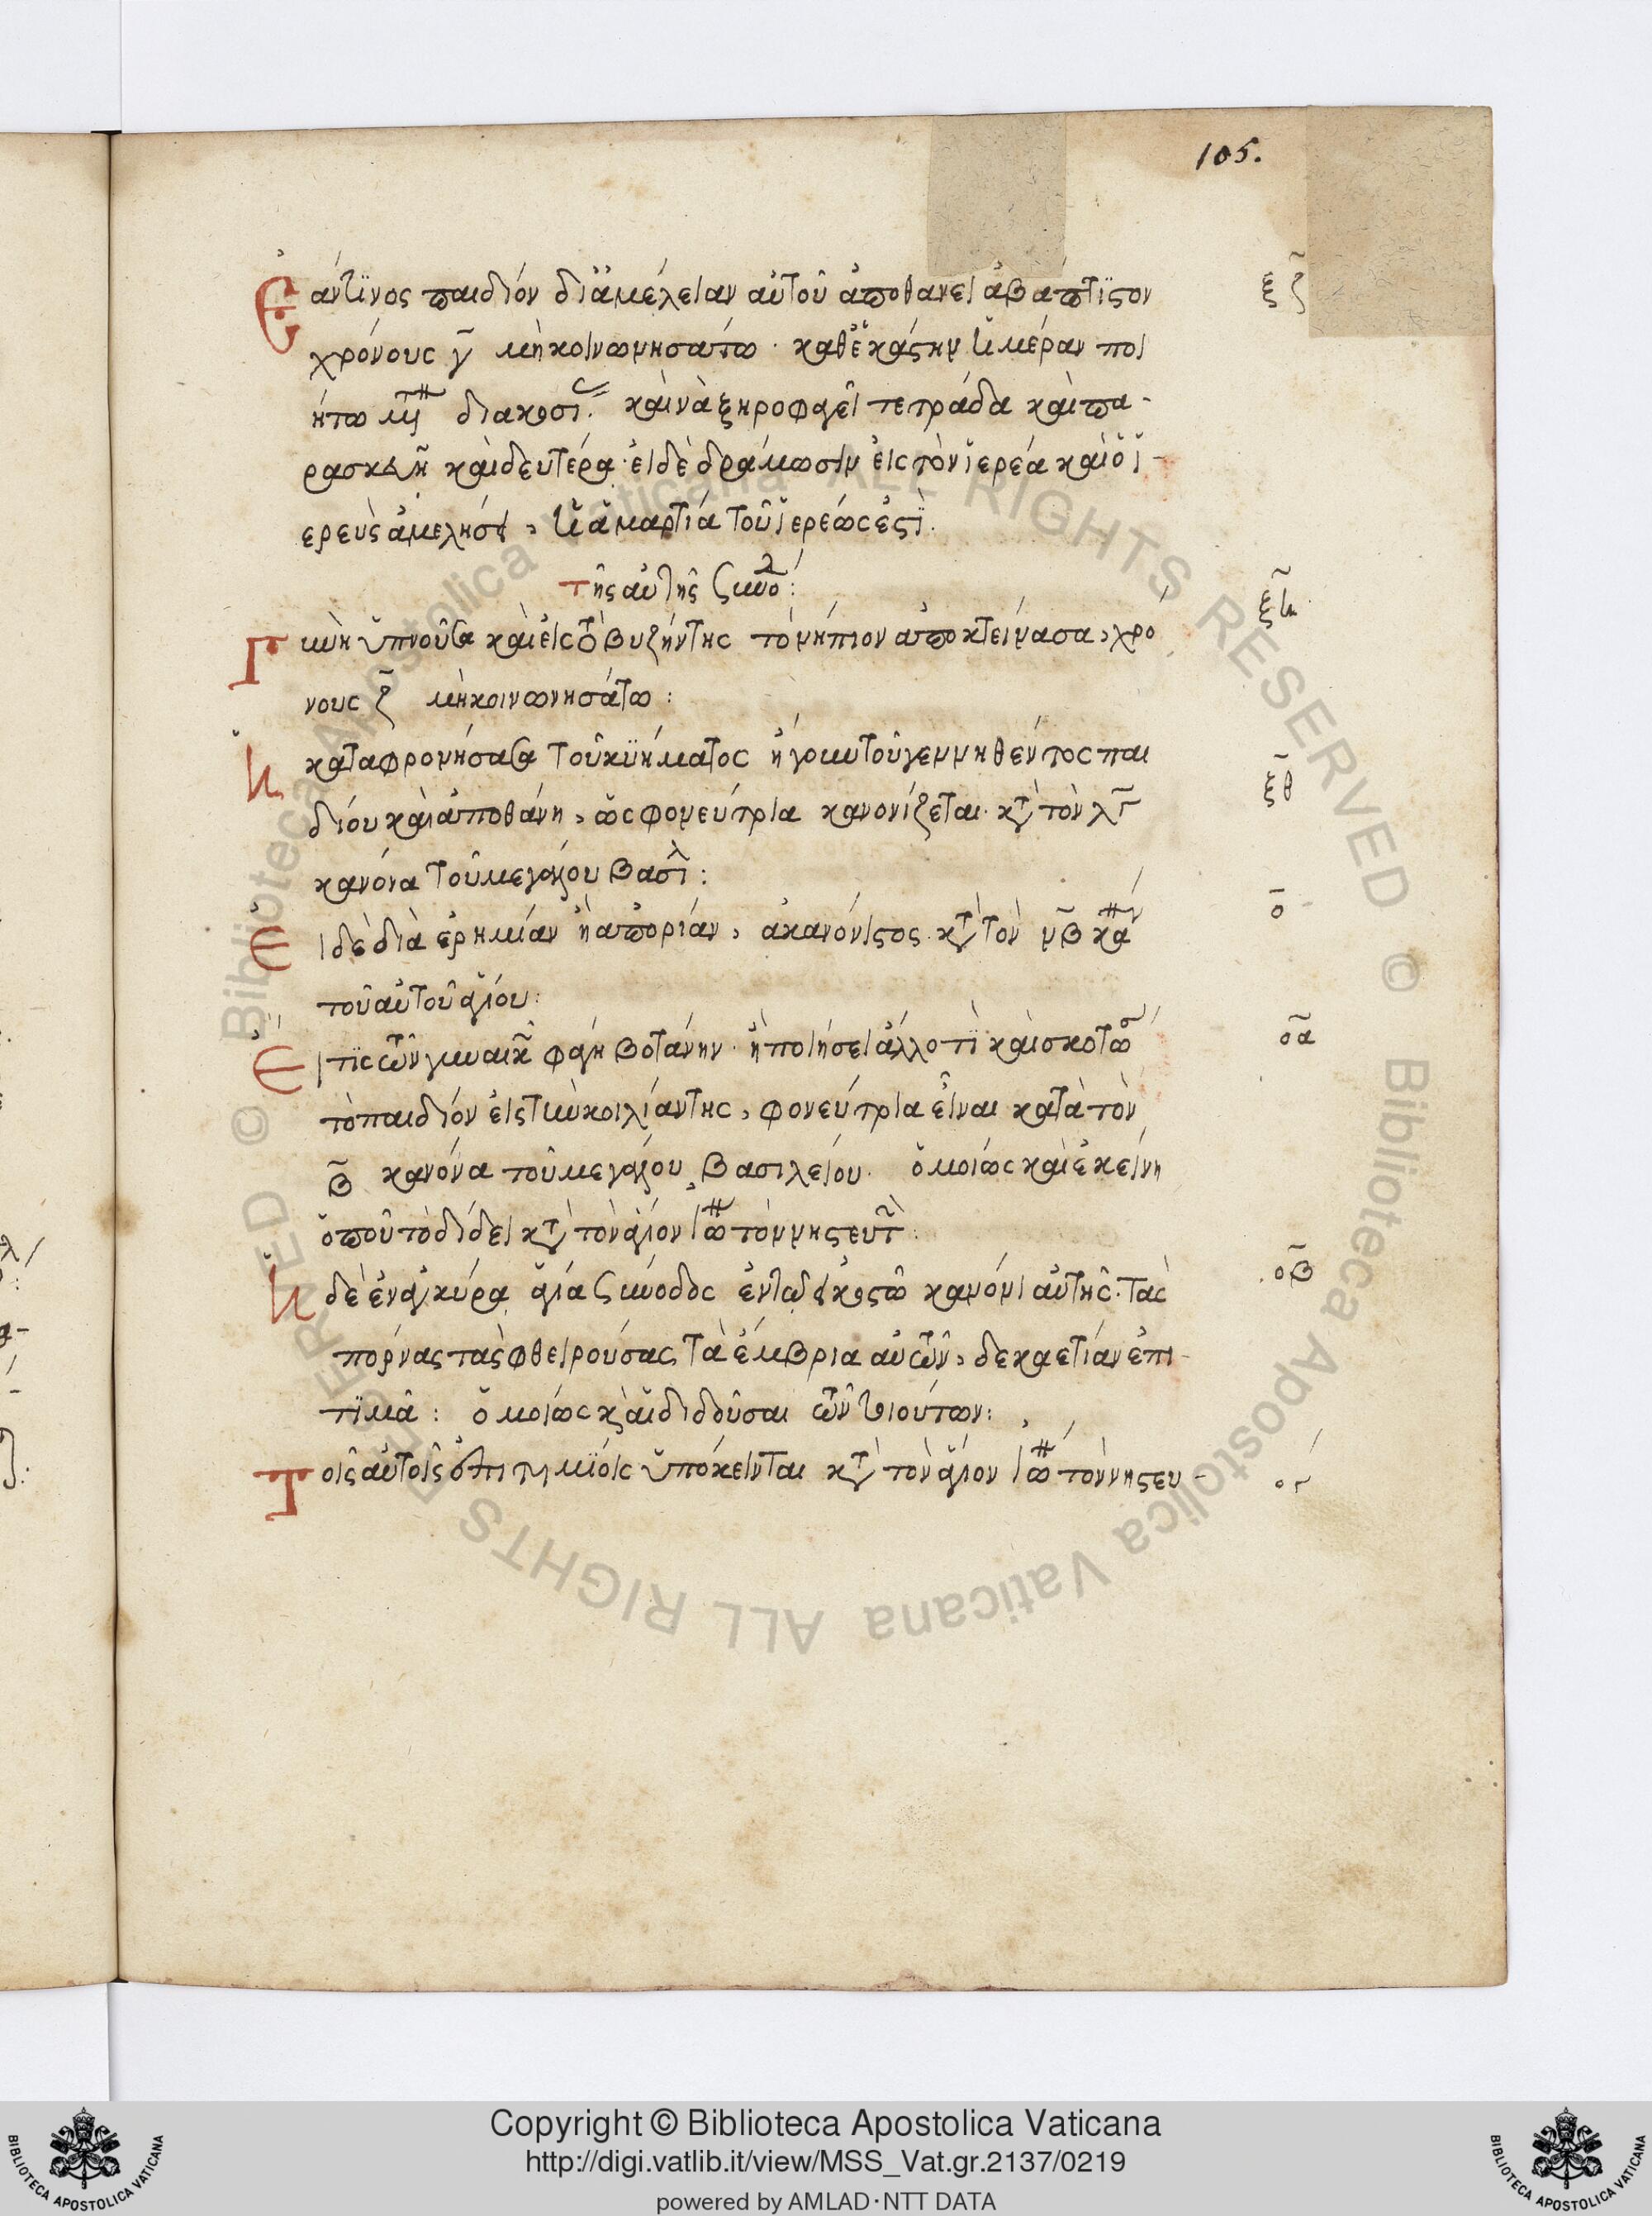 105.
Ἐάντινος παιδίον διἀμέλειαν αὐτοῦ ἀποθανεῖ ἀβάπτιστον ξζ
χρόνους γ μὴκοινωνησάτω · καθεκάστην ἡμέραν ποι
ήτω διακοσί. καὶνὰξηροφαγεῖ τετράδα καὶπα-
ρασκευῆ καὶδευτέρα· εἰδὲ δράμωσιν εἰς τὸνἱερέα καὶὁἱ-
ερεὺς ἀμελήσει, ἡἁμαρτία τοῦἱερέως ἐστί.
τῆς αὐτῆς συνο:
Γυνὴ ὑπνοῦσα καὶ εἰς τὸ βυζήντης τὸ νήπιον ἀποκτείνασα, χρό ξη
νους ζ μὴκοινωνησάτω:
Ἡ καταφρονήσασα τοῦκυήματος ἤγουντοῦγεννηθέντος παι ξθ
δίου καὶἀποθάνη, ὡς φονεύτρια κανονίζεται· κτ τὸν λγ
κανόνα τοῦμεγάλου Βασιλ:
Εἰδὲδιὰ ἐρημίαν ἢἀπορίαν, ἀκανόνιστος· κτ τὸν νβ κα ο
τοῦαὐτοῦἁγίου:
Εἴτις τῶνγυναικ φάγη βοτάνην· ἢποιήσει ἄλλοτὶ καὶσκοτω οα
τὸπαιδίον εἰςτὴνκοιλίαντης, φονεύτρια εἶναι κατὰ τὸν
β κανόνα τοῦμεγάλου Βασιλείου. ὁμοίως καὶἐκείνη
ὁποῦτὸδίδει κτ τὸνἅγιον Ἰω τὸννηστευτ:
Ἡ δὲἐνἀγκύρα ἁγία σύνοδος ἐντῶ εἰκοστῶ κανόνι αὐτῆς· τὰς οβ
πόρνας τὰςφθειρούσας τὰἔμβρια αὐτῶν, δεκαετίαν ἐπι-
τιμᾶ: ὁμοίως κ αἱδιδοῦσαι τῶν τοιούτων:
Τοῖςαὐτοῖς ἐπιτιμίοις ὑπόκεινται κτ τὸνἅγιον Ἰω τὸννηστευ- ογ
Copyright © Biblioteca Apostolica Vaticana
http://digi.vatlib.it/view/MSS_Vat.gr.2137/0219
powered by AMLAD·NTT DATA